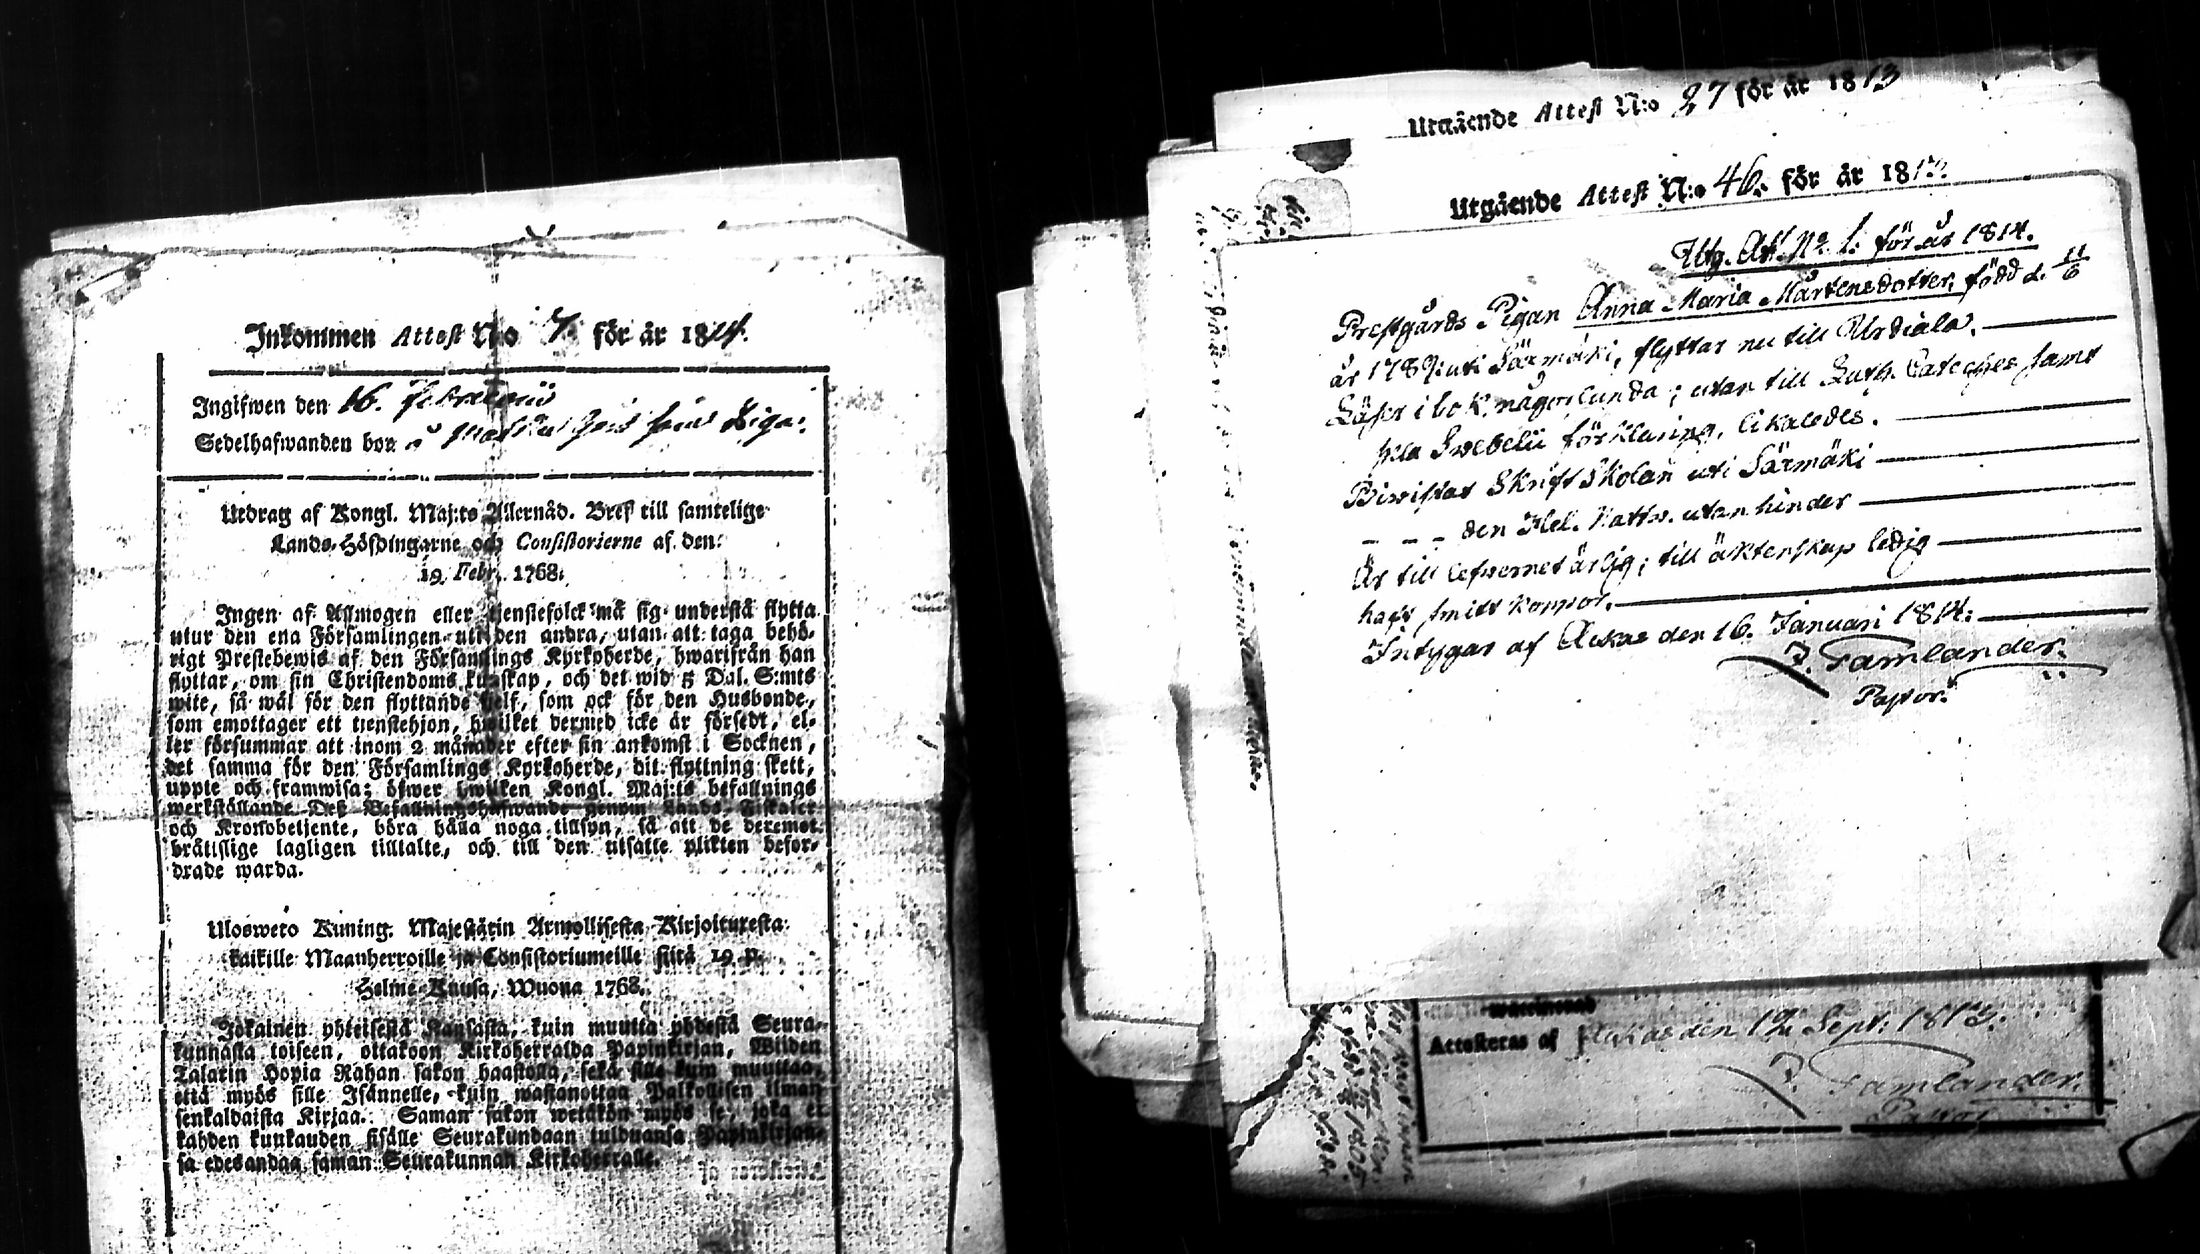 Inkommen Attest N:o 7. för år 1814.
Ingifwen den 16. Februarii
Sedelhafwanden bor å
Utdrag af Kongl. Maj:ts Allernåd. Bref till samtelige
Lands-Höfdingarne och Consistorierne af den
19 Febr. 1768.
Ingen af Allmogen eller tjenstefolck må sig understå flytta
utur den ena Församlingen uti den andra, utan att taga behö-
rigt Prestebewis af den Församlings Kyrkoherde, hwarifrån han
flyttar, om sin Christendoms kunskap, och det wid 5 Dal. S:mts
wite, så wäl för den flyttande sjelf, som ock för den Husbonde,
som emottager ett tjenstehjon, hwilket dermed icke är försedt, el-
ler försummar att inom 2 månader efter sin ankomst i Socknen,
det samma för den Församlings Kyrkoherde, dit flyttning skett,
uppte och framwisa; öfwer hwilken Kongl. Maj:ts befallnings
werkställande Deß Befallningshafwande genom Lands-Fiskaler
och Kronobetjente, böra hålla noga tillsyn, så att de deremot
bråtislige lagligen tilltalte, och till den utsatte plikten befor-
drade warda.
Ulosweto Kuning. Majestätin Armollisesta Kirjoituxesta
kaikille Maanherroille ja Consistoriumeille siitä 19 p.
Helme-Kuusa, Wuona 1768.
Jokainen yhteisestä Kansasta, kuin muutta yhdestä Seura-
kunnasta toiseen, ottakoon Kirkoherralda Papinkirjan, Wiiden
Talarin Hopia Rahan sakon haastolla, sekä sille kuin muuttaa,
että myös sille Isännelle, kuin wastanottaa Palkollisen ilman
senkaldaista Kirjaa. Saman sakon wetäkön myös se, joka ei
kahden kuukauden sisälle Seurakundaan tulduansa Papinkirjaan-
sa edesandaa saman Seurakunnan Kirkoherralle.
Utgående Attest N:o 27 för år 1813
Utgående Attest N:o 46. för år 1813.
Utg. Att. No 1. för år 1814.
Prestgårds Pigan Anna Maria Mårtensdotter, född d. 11/6
år 1789 uti Särmäki, flyttar nu till Urdiala.
Läser i bok någorlunda; utan till Luth. Cateches samt
hela Swebelii förklaring, likaledes.
Biwistat Skriftskolan uti Särmäki
- - - den Hel. Nattw. utan hinder
Är till lefwernet ärlig; till äktenskap ledig
haft smittkoppor.
Intygar af Ackas den 16. Januari 1814.
J. Tamlander.
Pastor.
Attesteras af Ackas den 12 Sept: 1813.
J. Tamlander.
Pastor